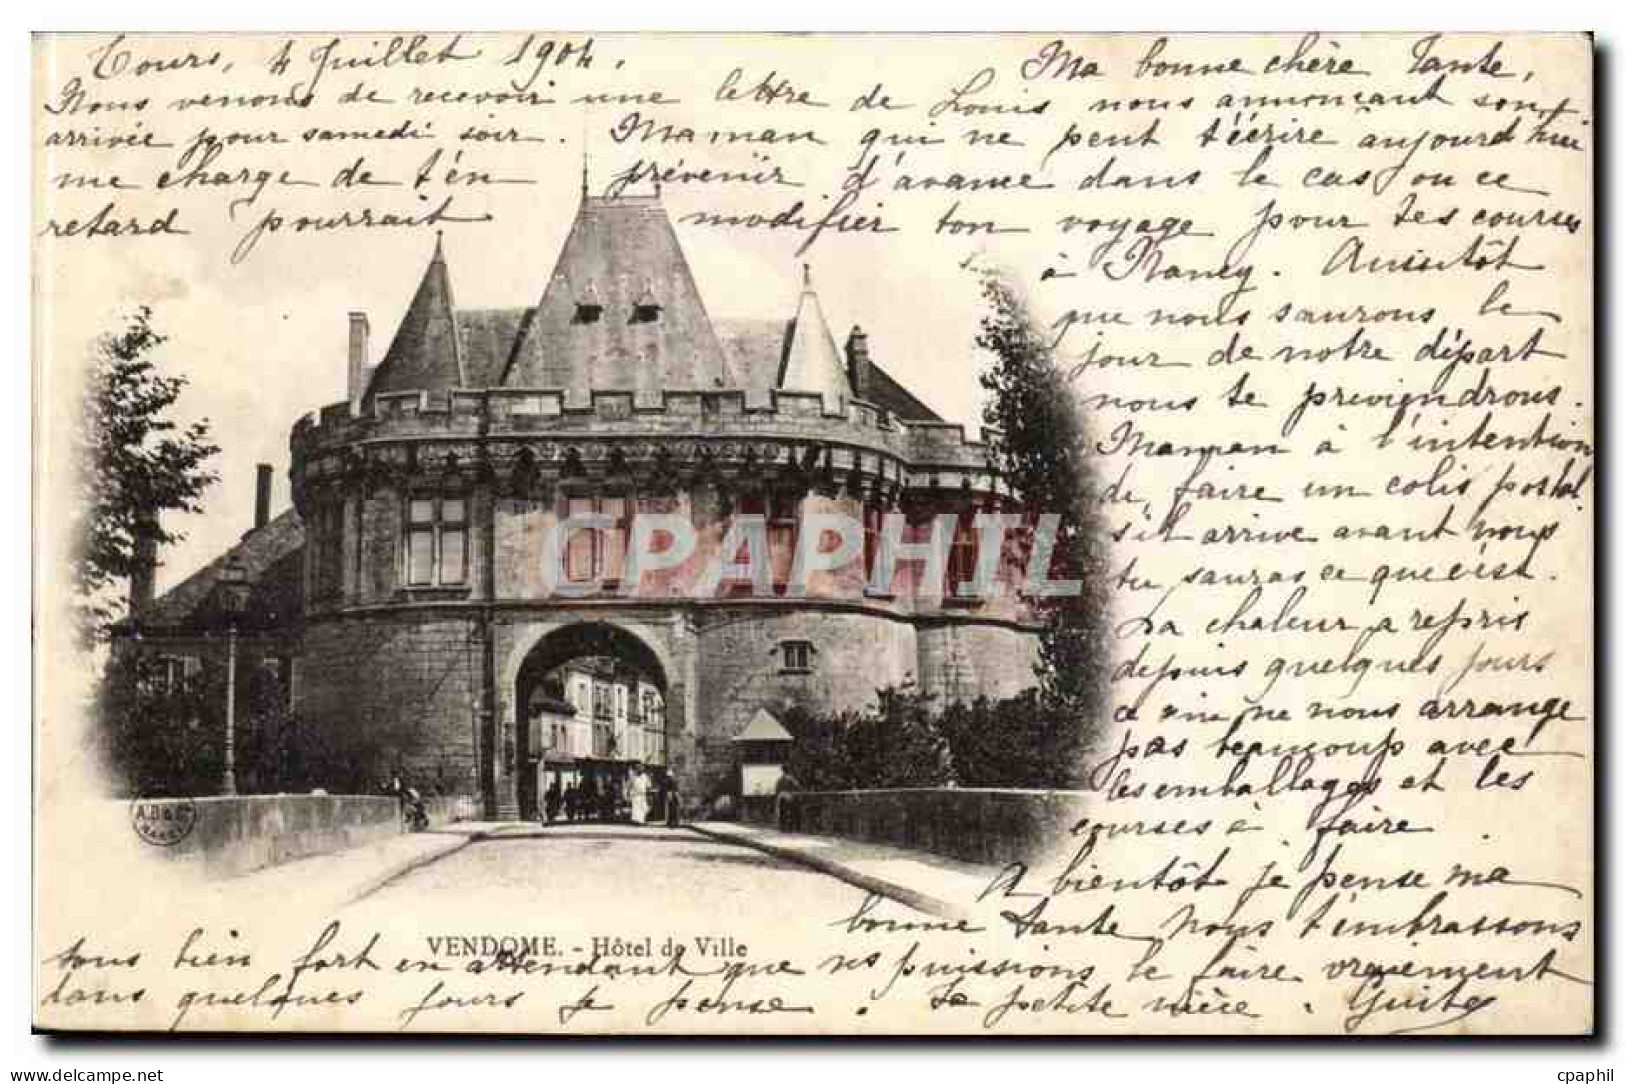 Tours, 4 Juillet 1904.
Ma bonne chère Tante,
Nous venons de recevoir une lettre de Louis nous annonçant son
arrivée pour samedi soir. Maman qui ne peut t'écrire aujourd'hui
me charge de t'en prévenir d'avance dans le cas ou ce
retard pourrait modifier ton voyage pour tes courses
à Nancy. Aussitôt
que nous saurons le
jour de notre départ
nous te préviendrons.
Maman à l'intention
de faire un colis postal
s'il arrive avant nous
tu sauras ce que c'est.
La chaleur a repris
depuis quelques jours
ce qui ne nous arrange
pas beaucoup avec
les emballages et les
courses à faire.
A bientôt je pense ma
bonne Tante Nous t'embrassons
tous bien fort en attendant que ns puissions le faire vraiement
dans quelques jours je pense. Ta petite nièce. Guite
VENDOME. - Hôtel de Ville
A.B & Cie
NANCY
CPAPHIL
delcampe.net
cpaphil